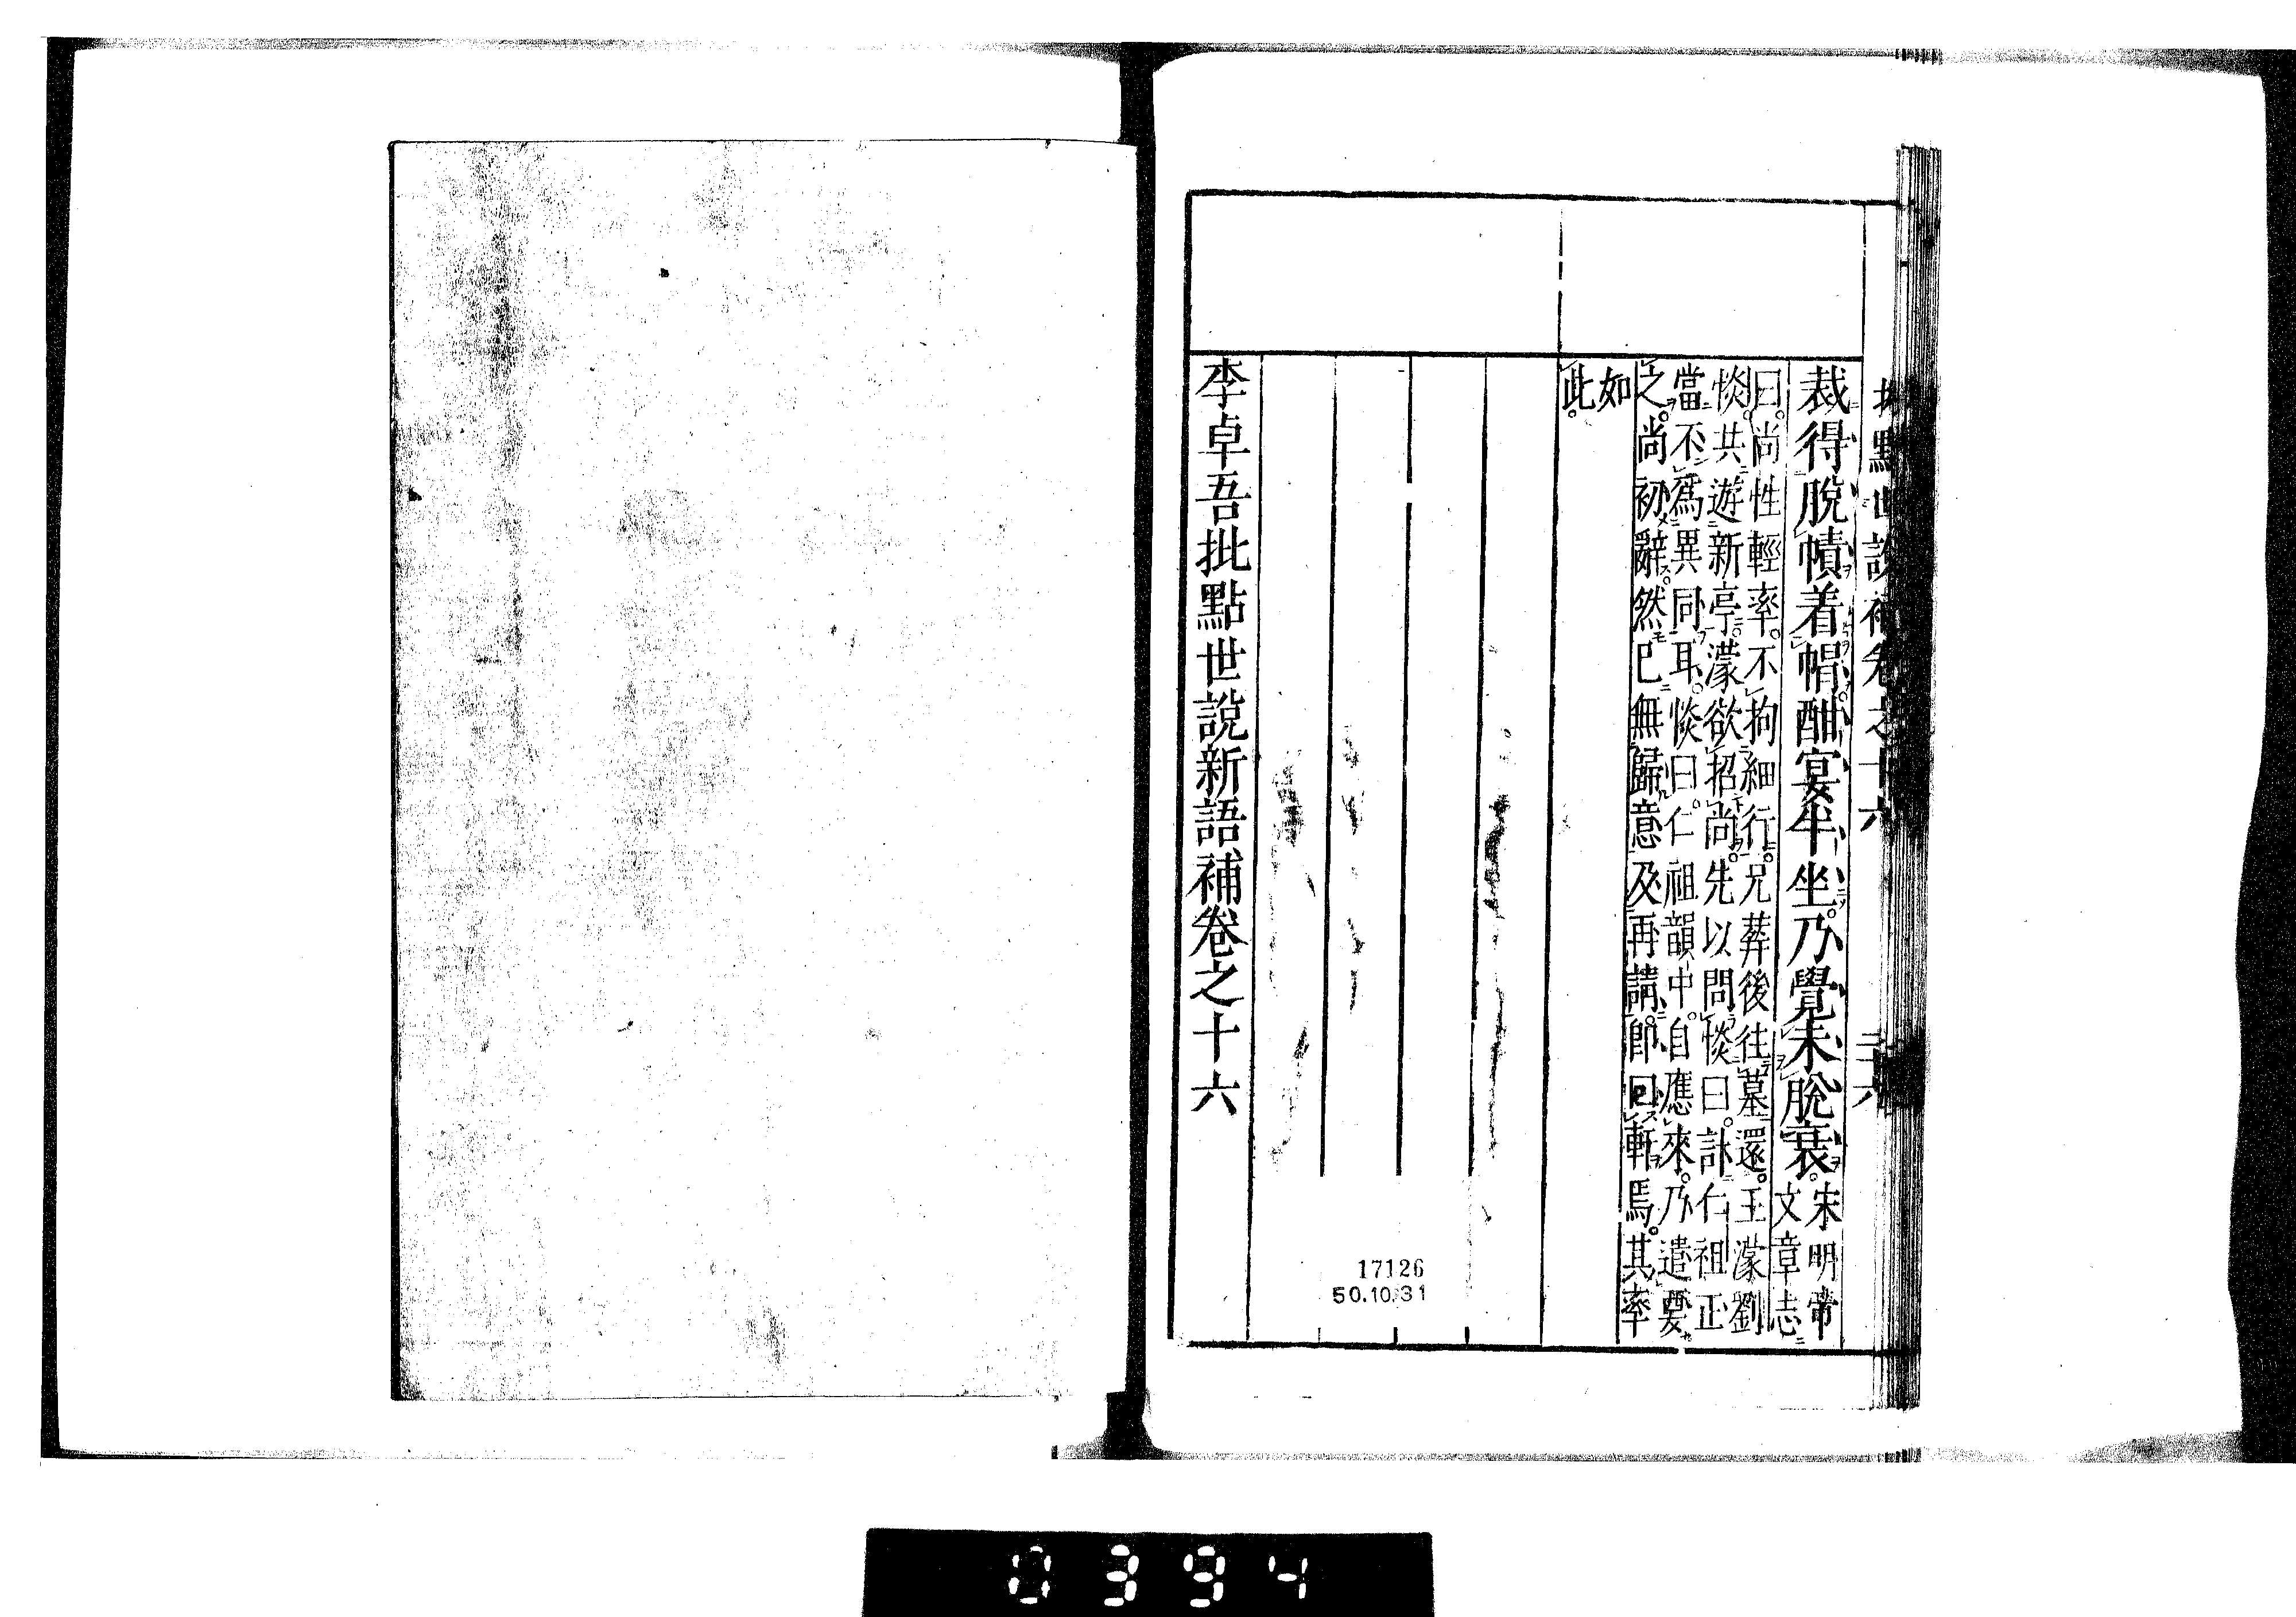 裁得脫幘着帽酣宴半坐乃覺未脫衰
宋明帝
文章志
曰尚性輕率不拘細行兄葬後往墓還王濛劉
惔共遊新亭濛欲招尚先以問惔曰計仁祖正
當不為異同耳惔曰仁祖韻中自應來乃遣要
之尚初辭然已無歸意及再請即回軒焉其率
如
此
李卓吾批點世說新語補卷之十六
17126
50.10.31
0394